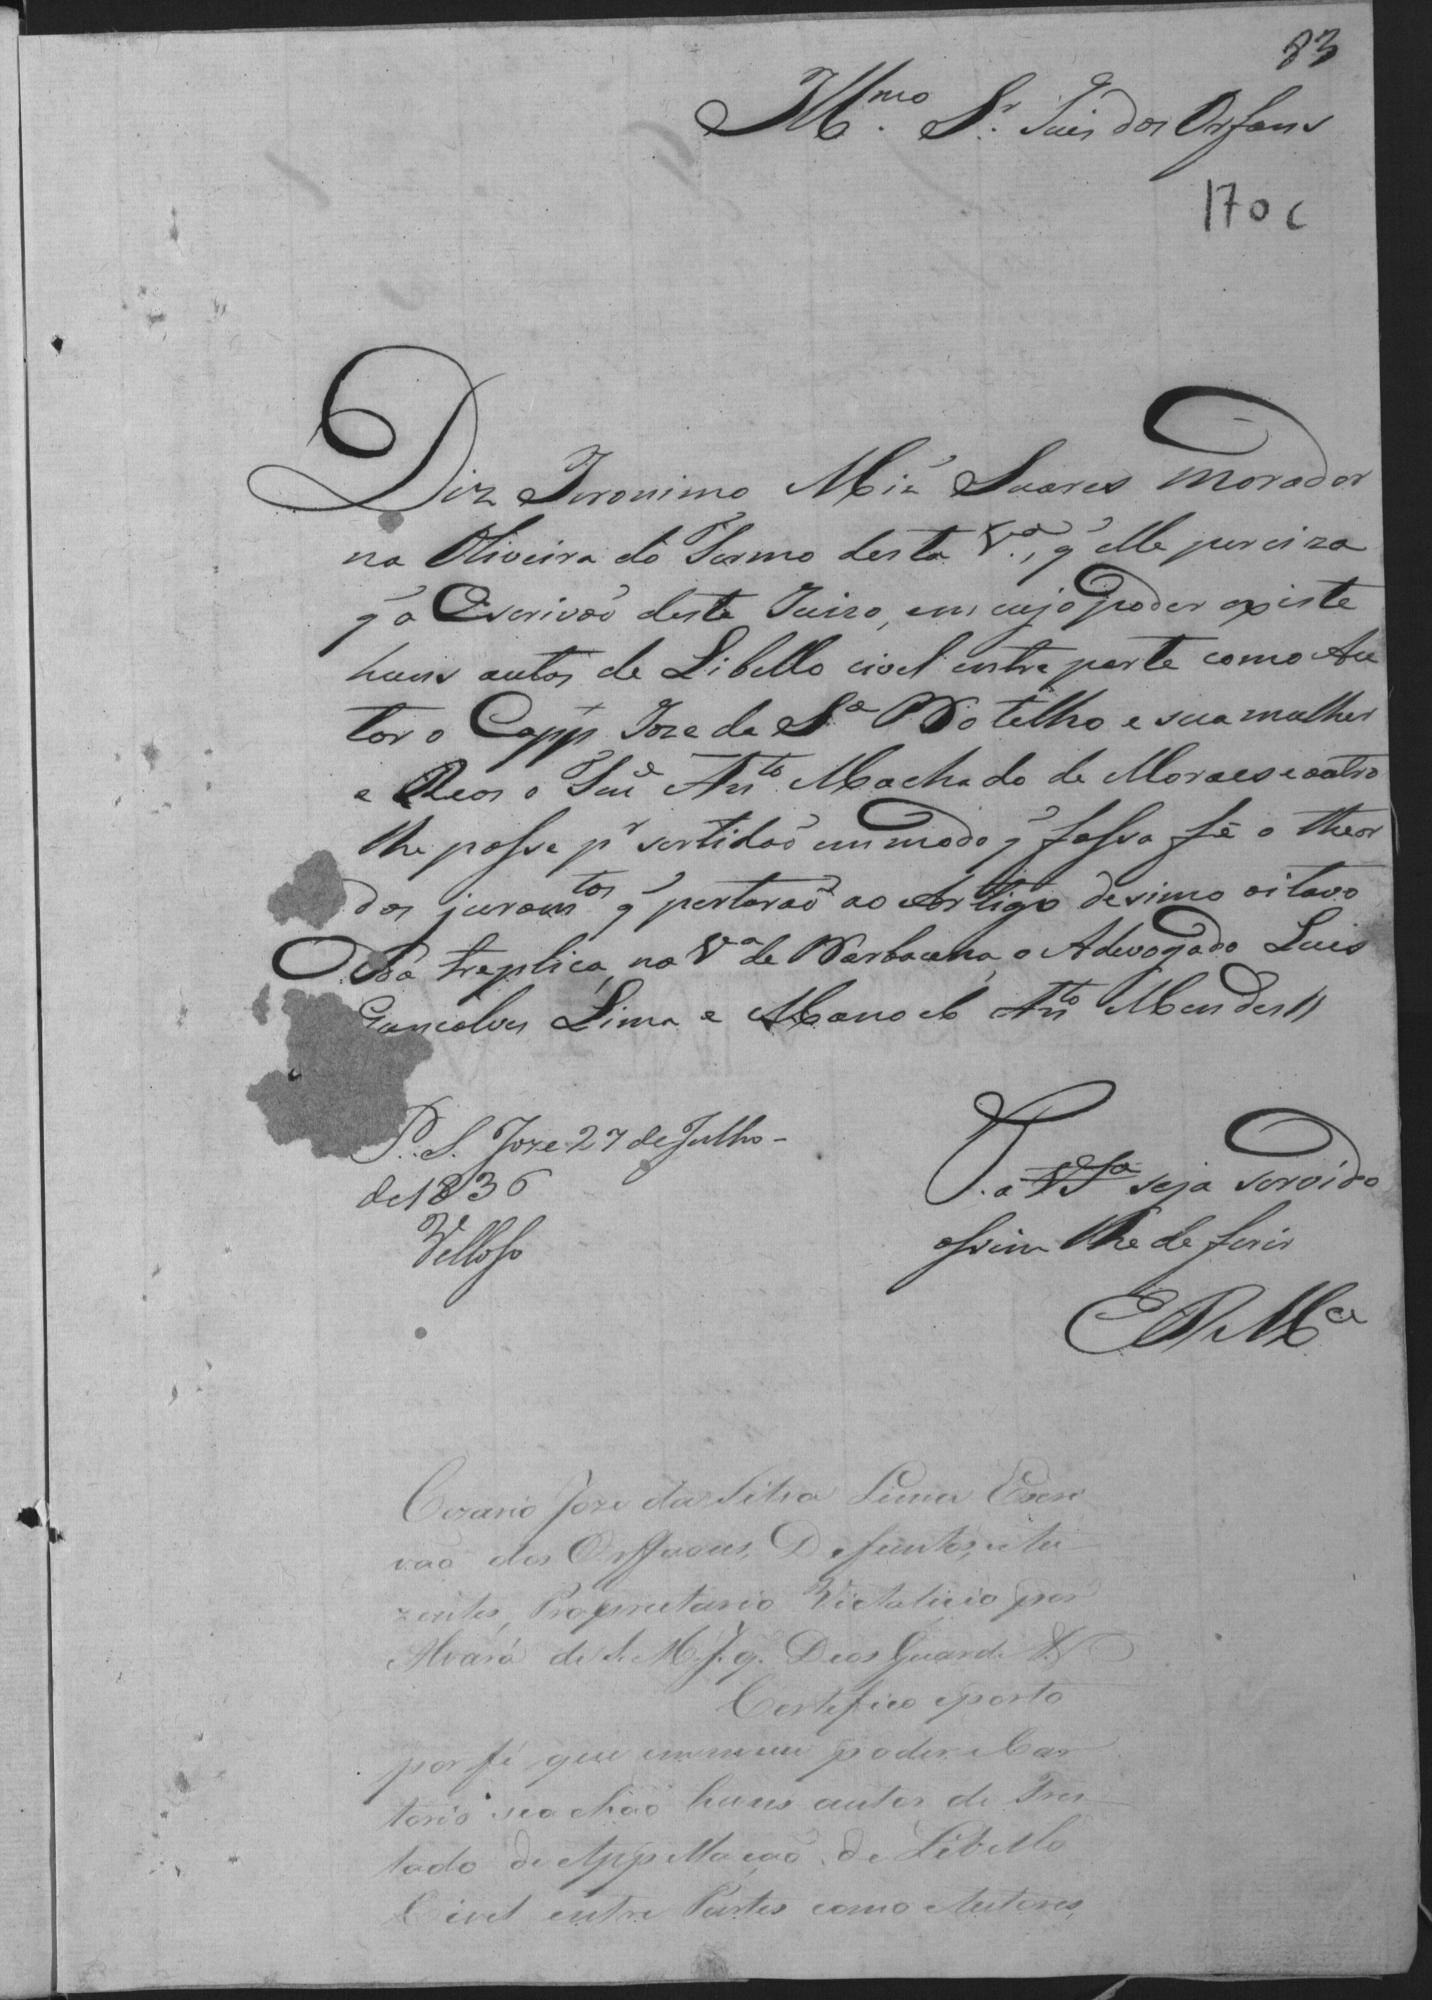 83
Illmo. Sr. Juis dos Orfans
170 c
Diz Jeronimo Mis Suares morador
na Oliveira do Termo desta Va., q̃ elle perciza
q̃ o Escrivaõ deste Juizo, em cujo poder existe
huns autos de Libello civel entre parte como Au
tor o Capp Joze da Sa Botelho e sua mulher
e Reos o Anto. Machado de Moraes e outro
lhe passe pr sertidaõ em modo q̃ fassa fê o theor
dos juramtos q̃ pertaraõ ao Artigo desimo oitavo
da treplica, na Va de Barbacena, o Advogado Luis
Gonçalves Lima e Manoel Anto Mendes //
P. S. Joze 27 de Julho -
de 1836
Velloso
P. a VSa seja servido
assim lhe deferir
E R Mce
Cezario Joze da Silva Lima Escri
vaõ dos Orffaous, Defuntos, e Au
zentes, Proprietario Victalicio por
Alvará de S. M. J. q. Deos Guarde &
Certefico e porto
por fé que em meu poder e Car
torio se achaõ huns autos de Tres
lado de Appellaçaõ de Libello
Civel entre Partes como Autores,